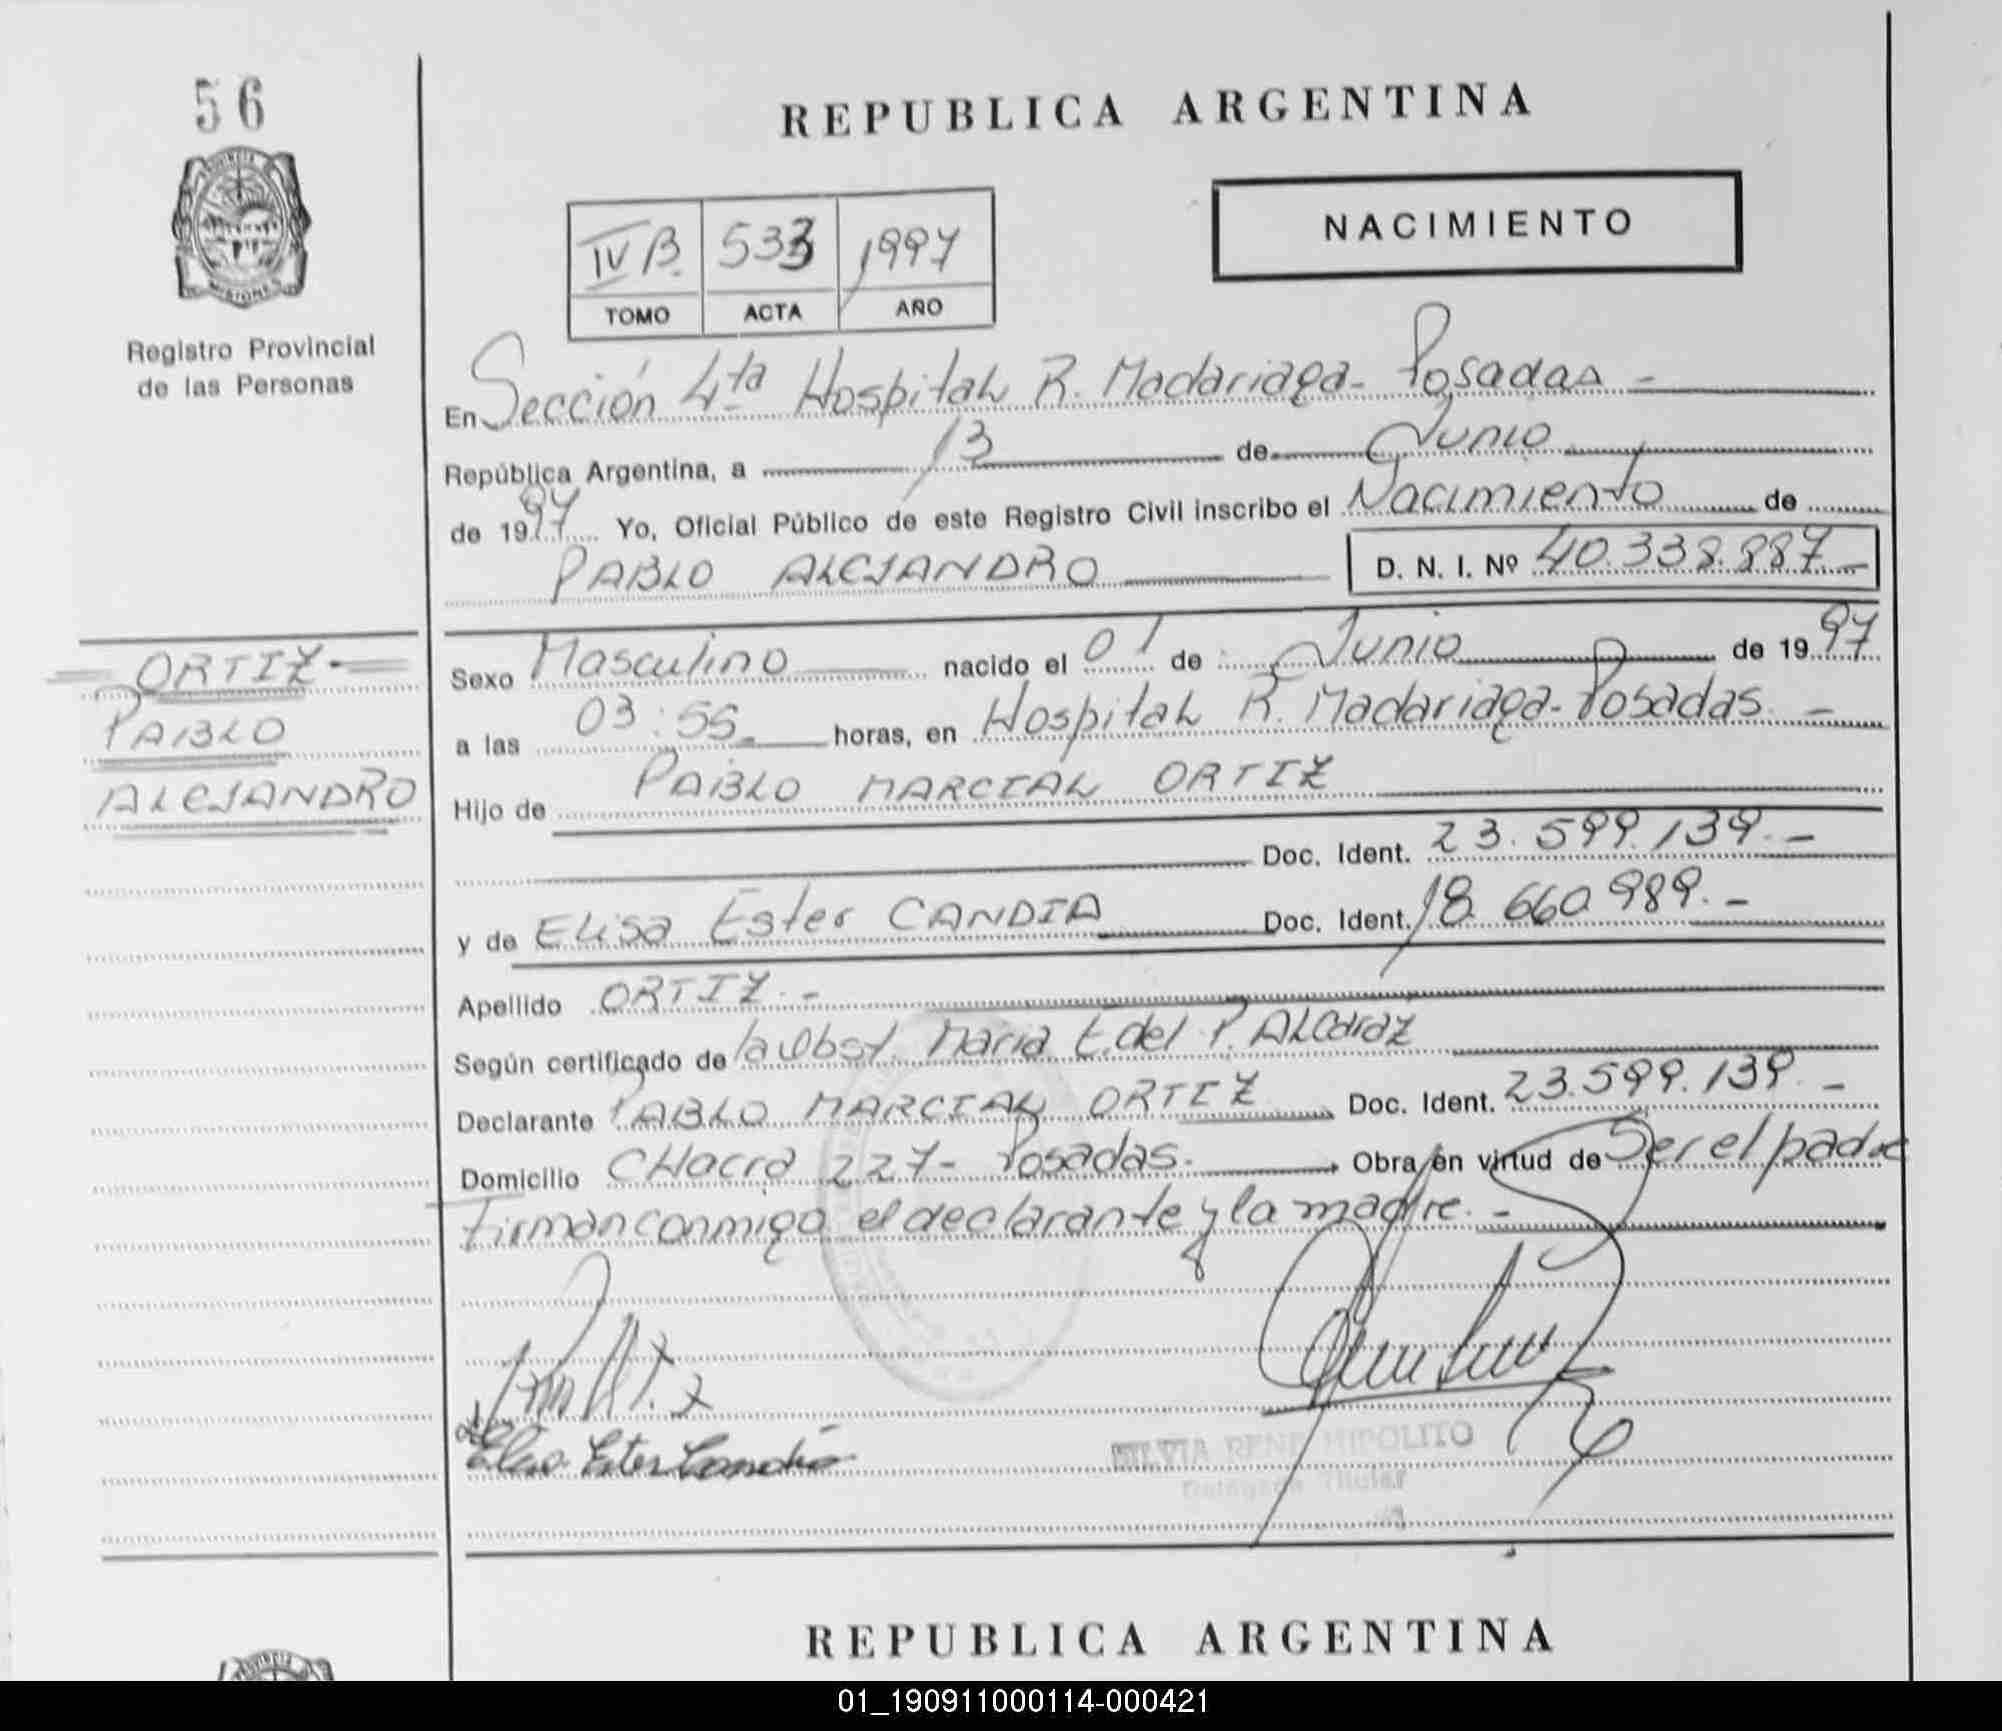 56
REPUBLICA ARGENTINA
PROVINCIA
MISIONES
Registro Provincial
de las Personas
NACIMIENTO
IV B. 533 1997
TOMO ACTA AÑO
En Sección 4ta Hospital R. Madariaga- Posadas -
República Argentina, a 13 de Junio
de 1997 Yo, Oficial Público de este Registro Civil inscribo el Nacimiento de
PABLO ALEJANDRO D. N. I. Nº 40.338.887-
ORTIZ-
PABLO
ALEJANDRO
Sexo Masculino nacido el 01 de Junio de 1997
a las 03:55 horas, en Hospital R. Madariaga- Posadas. -
Hijo de PABLO MARCIAL ORTIZ
Doc. Ident. 23.599.139.-
y de Elisa Ester CANDIA Doc. Ident. 18.660989.-
Apellido ORTIZ.-
Según certificado de la Obst. Maria E. del P. ALcaraz
Declarante PABLO MARCIAL ORTIZ Doc. Ident. 23.599.139.-
Domicilio CHacra 227- Posadas. Obra en virtud de Ser el padre
firman conmigo el declarante y la madre.-
Elisa Ester Candia
SILVIA RENE HIPOLITO
Titular
REPUBLICA ARGENTINA
01_190911000114-000421